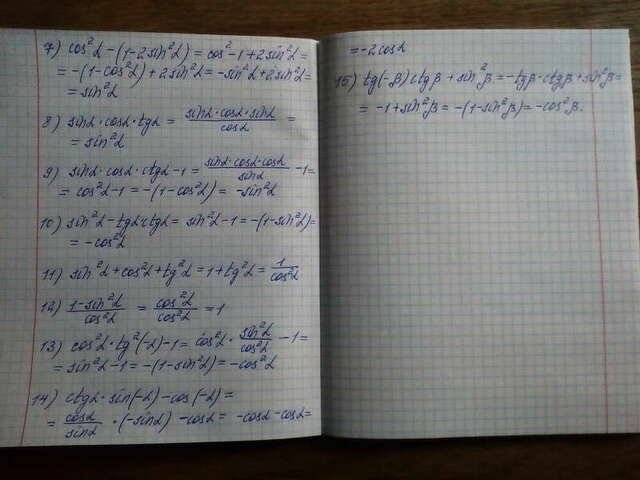 7) cos²α-(1-2sin²α) = cos²-1+2sin²α=
= -(1-cos²α)+2sin²α= -sin²α+2sin²α=
= sin²α
8) sinα·cosα·tgα = sinα·cosα·sinα/cosα =
= sin²α
9) sinα·cosα·ctgα-1 = sinα·cosα·cosα/sinα -1=
= cos²α-1 = -(1-cos²α)= -sin²α
10) sin²α-tgα·ctgα= sin²α-1=-(1-sin²α)=
= -cos²α
11) sin²α+cos²α+tg²α=1+tg²α= 1/cos²α
12) 1-sin²α/cos²α = cos²α/cos²α = 1
13) cos²α·tg²(-α)-1= cos²α· sin²α/cos²α -1=
= sin²α-1=-(1-sin²α)= -cos²α
14) ctgα·sin(-α)-cos(-α)=
= cosα/sinα ·(-sinα) -cosα= -cosα-cosα=
= -2cosα
15) tg(-β)ctgβ+sin²β=-tgβ·ctgβ+sin²β=
= -1+sin²β= -(1-sin²β)= -cos²β.